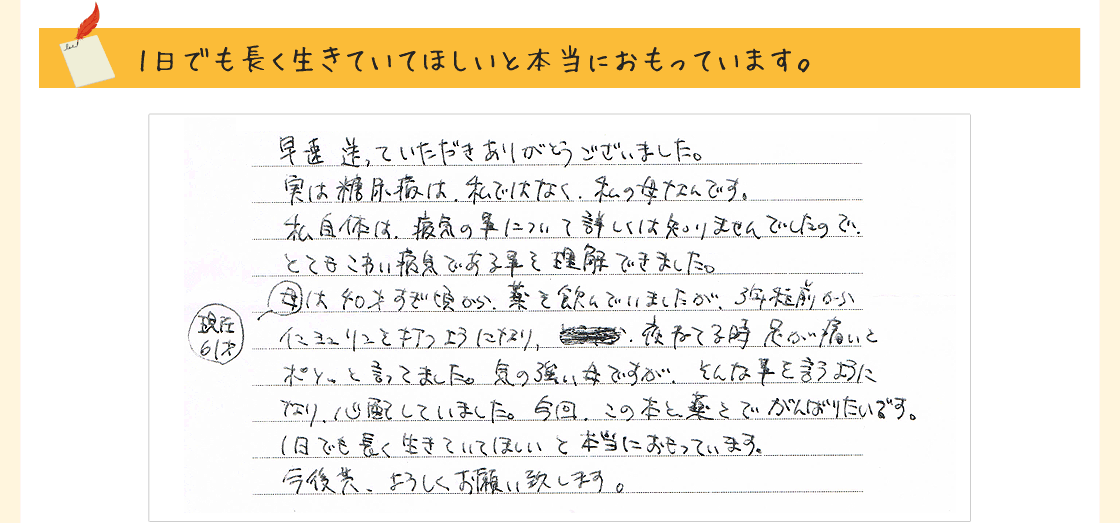 1日でも長く生きていてほしいと本当におもっています。
早速 送っていただきありがとうございました。
実は糖尿病は、私ではなく、私の母なんです。
私自体は、病気の事について詳しくは知りませんでしたので、
とてもこわい病気である事を理解できました。
母は40才すぎ頃から、薬を飲んでいましたが、3年程前から
現在
61才
インシュリンを打つようになり、夜ねてる時足が痛いと
ポツっと言ってました。気の強い母ですが、そんな事を言うように
なり、心配していました。今回、この本と、薬とでがんばりたいです。
1日でも長く生きていてほしいと本当におもっています。
今後共、よろしくお願い致します。